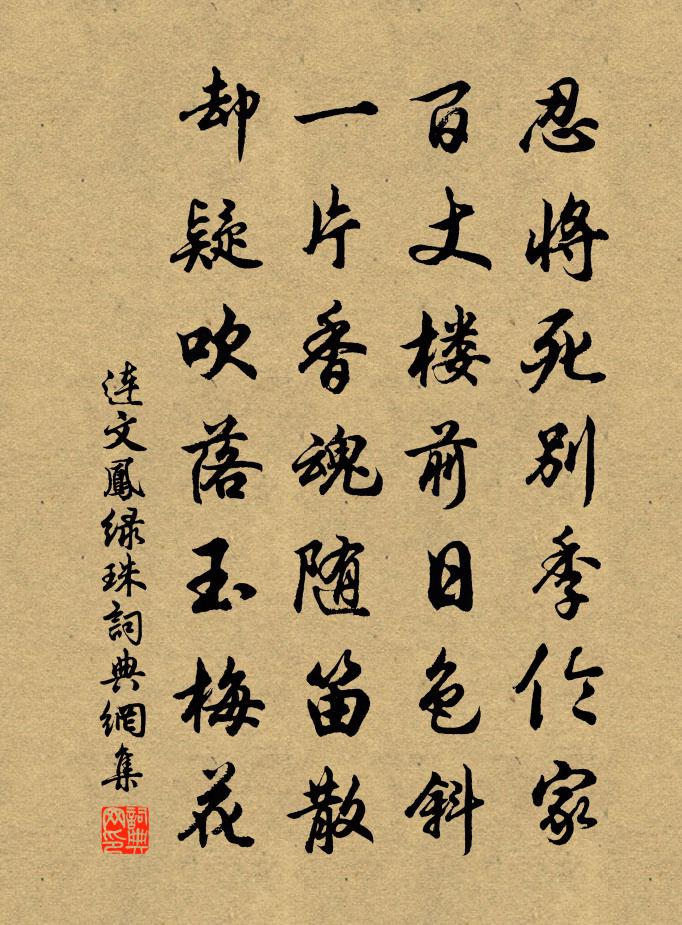 忍将死别季伦家
百丈楼前日色斜
一片香魂随笛散
却疑吹落玉梅花
連文鳳绿珠詞典網集
詞典网印